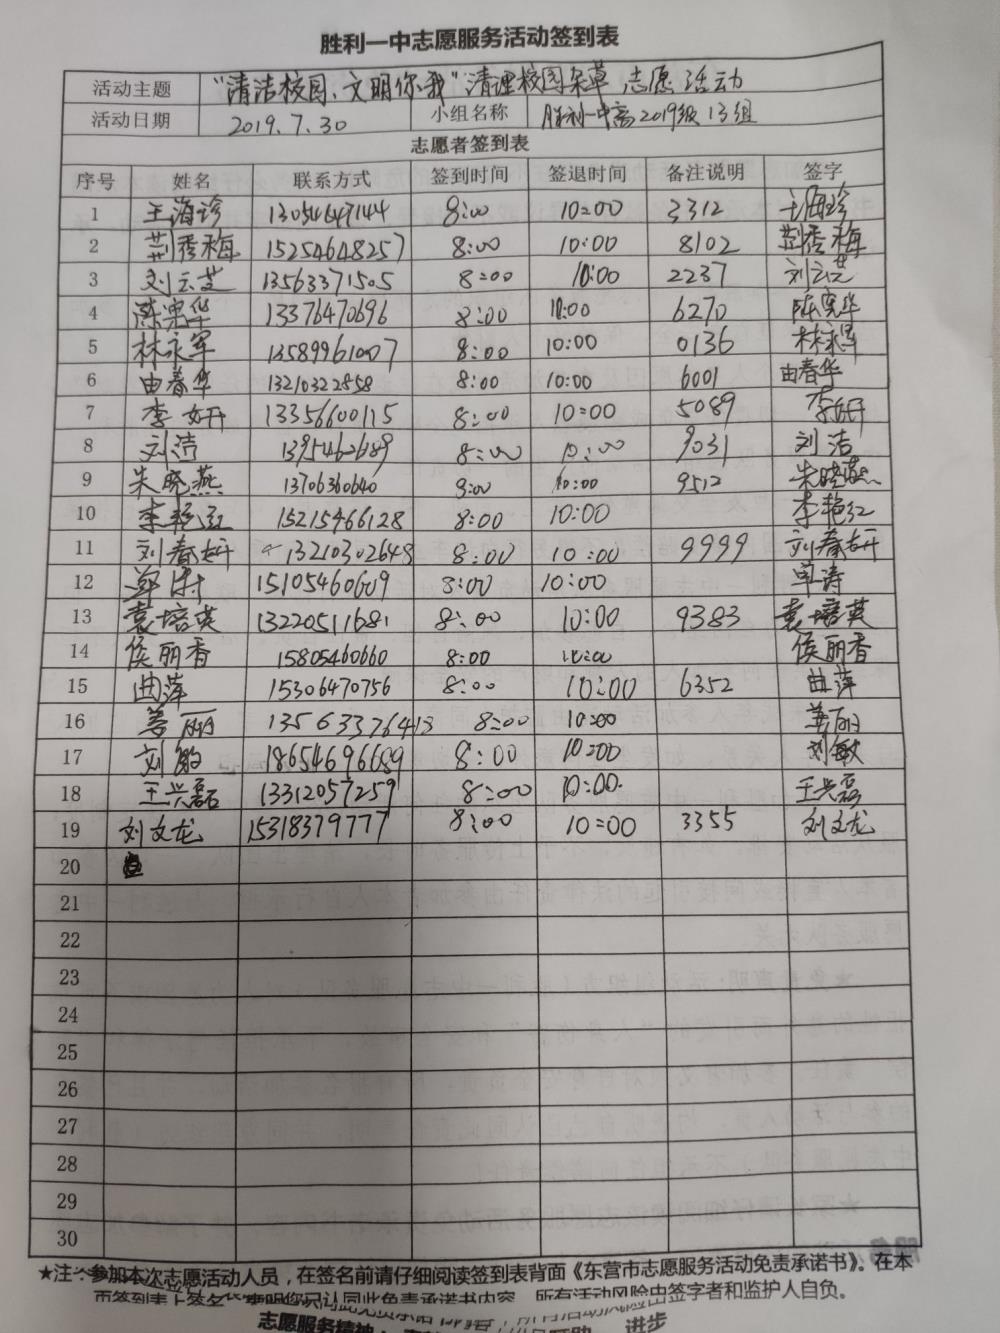 胜利一中志愿服务活动签到表
活动主题 "清洁校园、文明你我"清理校园杂草 志愿活动
活动日期 2019.7.30 小组名称 胜利一中高2019级13组
志愿者签到表
序号 姓名 联系方式 签到时间 签退时间 备注说明 签字
1 王海珍 13054647144 8:00 10:00 3312 王海珍
2 荆秀梅 15254648257 8:00 10:00 8102 荆秀梅
3 刘云芝 13563371505 8:00 10:00 2237 刘云芝
4 陈宪华 13376470696 8:00 10:00 6270 陈宪华
5 林永军 13589961007 8:00 10:00 0136 林永军
6 由春华 13210322858 8:00 10:00 6001 由春华
7 李妍 13356600115 8:00 10:00 5089 李妍
8 刘洁 13954626189 8:00 10:00 9031 刘洁
9 朱晓燕 13706360640 8:00 10:00 9512 朱晓燕
10 李艳红 15215466128 8:00 10:00 李艳红
11 刘春妍 13210302648 8:00 10:00 9999 刘春妍
12 15105460609 8:00 10:00
13 袁培英 13220511681 8:00 10:00 9383 袁培英
14 侯丽香 15805460660 8:00 10:00 侯丽香
15 曲萍 15306470756 8:00 10:00 6352 曲萍
16 姜丽 13563376413 8:00 10:00 姜丽
17 刘敏 18654696689 8:00 10:00 刘敏
18 王兴磊 13312057259 8:00 10:00 王兴磊
19 刘文龙 15318379777 8:00 10:00 3355 刘文龙
20
21
22
23
24
25
26
27
28
29
30
★注:参加本次志愿活动人员,在签名前请仔细阅读签到表背面《东营市志愿服务活动免责承诺书》。在本
页签到表上签名,表明您已认同此免责承诺书内容,所有活动风险由签字者和监护人自负。
志愿服务精神: 进步